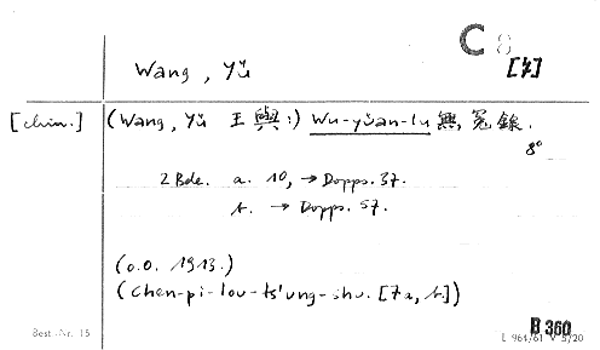 C 8
Wang, Yü
[4]
[chin.]
(Wang, Yü 王與:) Wu-yüan-lu 無冤錄.
8°
2 Bde. a. 10, → Dopps. 37.
b. → Dopps. 57.
(o.O. 1913.)
(Chen-pi-lou-ts'ung-shu. [7a, b.])
B 360
Best.-Nr. 15
L 964/61 V 5/20